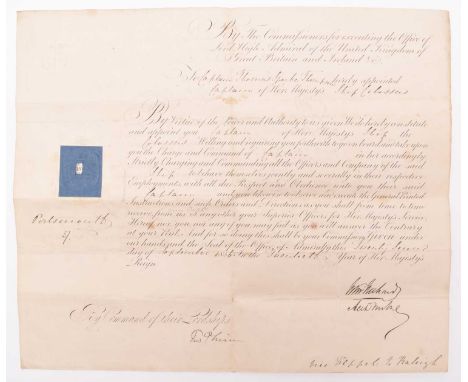 By The Commissioners for executing the Office of
Lord High Admiral of the United Kingdom of
Great Britain and Ireland &c.
To Captain Thomas hereby appointed
Captain of Her Majesty's Ship Colossus
By Virtue of the Power and Authority to us given We do hereby constitute
and appoint you Captain of Her Majesty's Ship the
Colossus Willing and requiring you forthwith to go on board and take upon
you the Charge and Command of Captain in her accordingly
Strictly Charging and Commanding all the Officers and Company of the said
Ship to behave themselves jointly and severally in their respective
Employments with all due Respect and Obedience unto you their said
Captain and you likewise to observe and execute the General Printed
Instructions and such Orders and Directions as you shall from time to time
receive from us or any other your Superior Officers for Her Majesty's Service.
Hereof nor you nor any of you may fail as you will answer the Contrary
at your Peril. And for so doing this shall be your Commission. Given under
our hands and the Seal of the Office of Admiralty this Twenty
day of September in the Twentieth Year of Her Majesty's
Reign
Portsmouth
By Command of their Lordships
vice Keppel to Raleigh